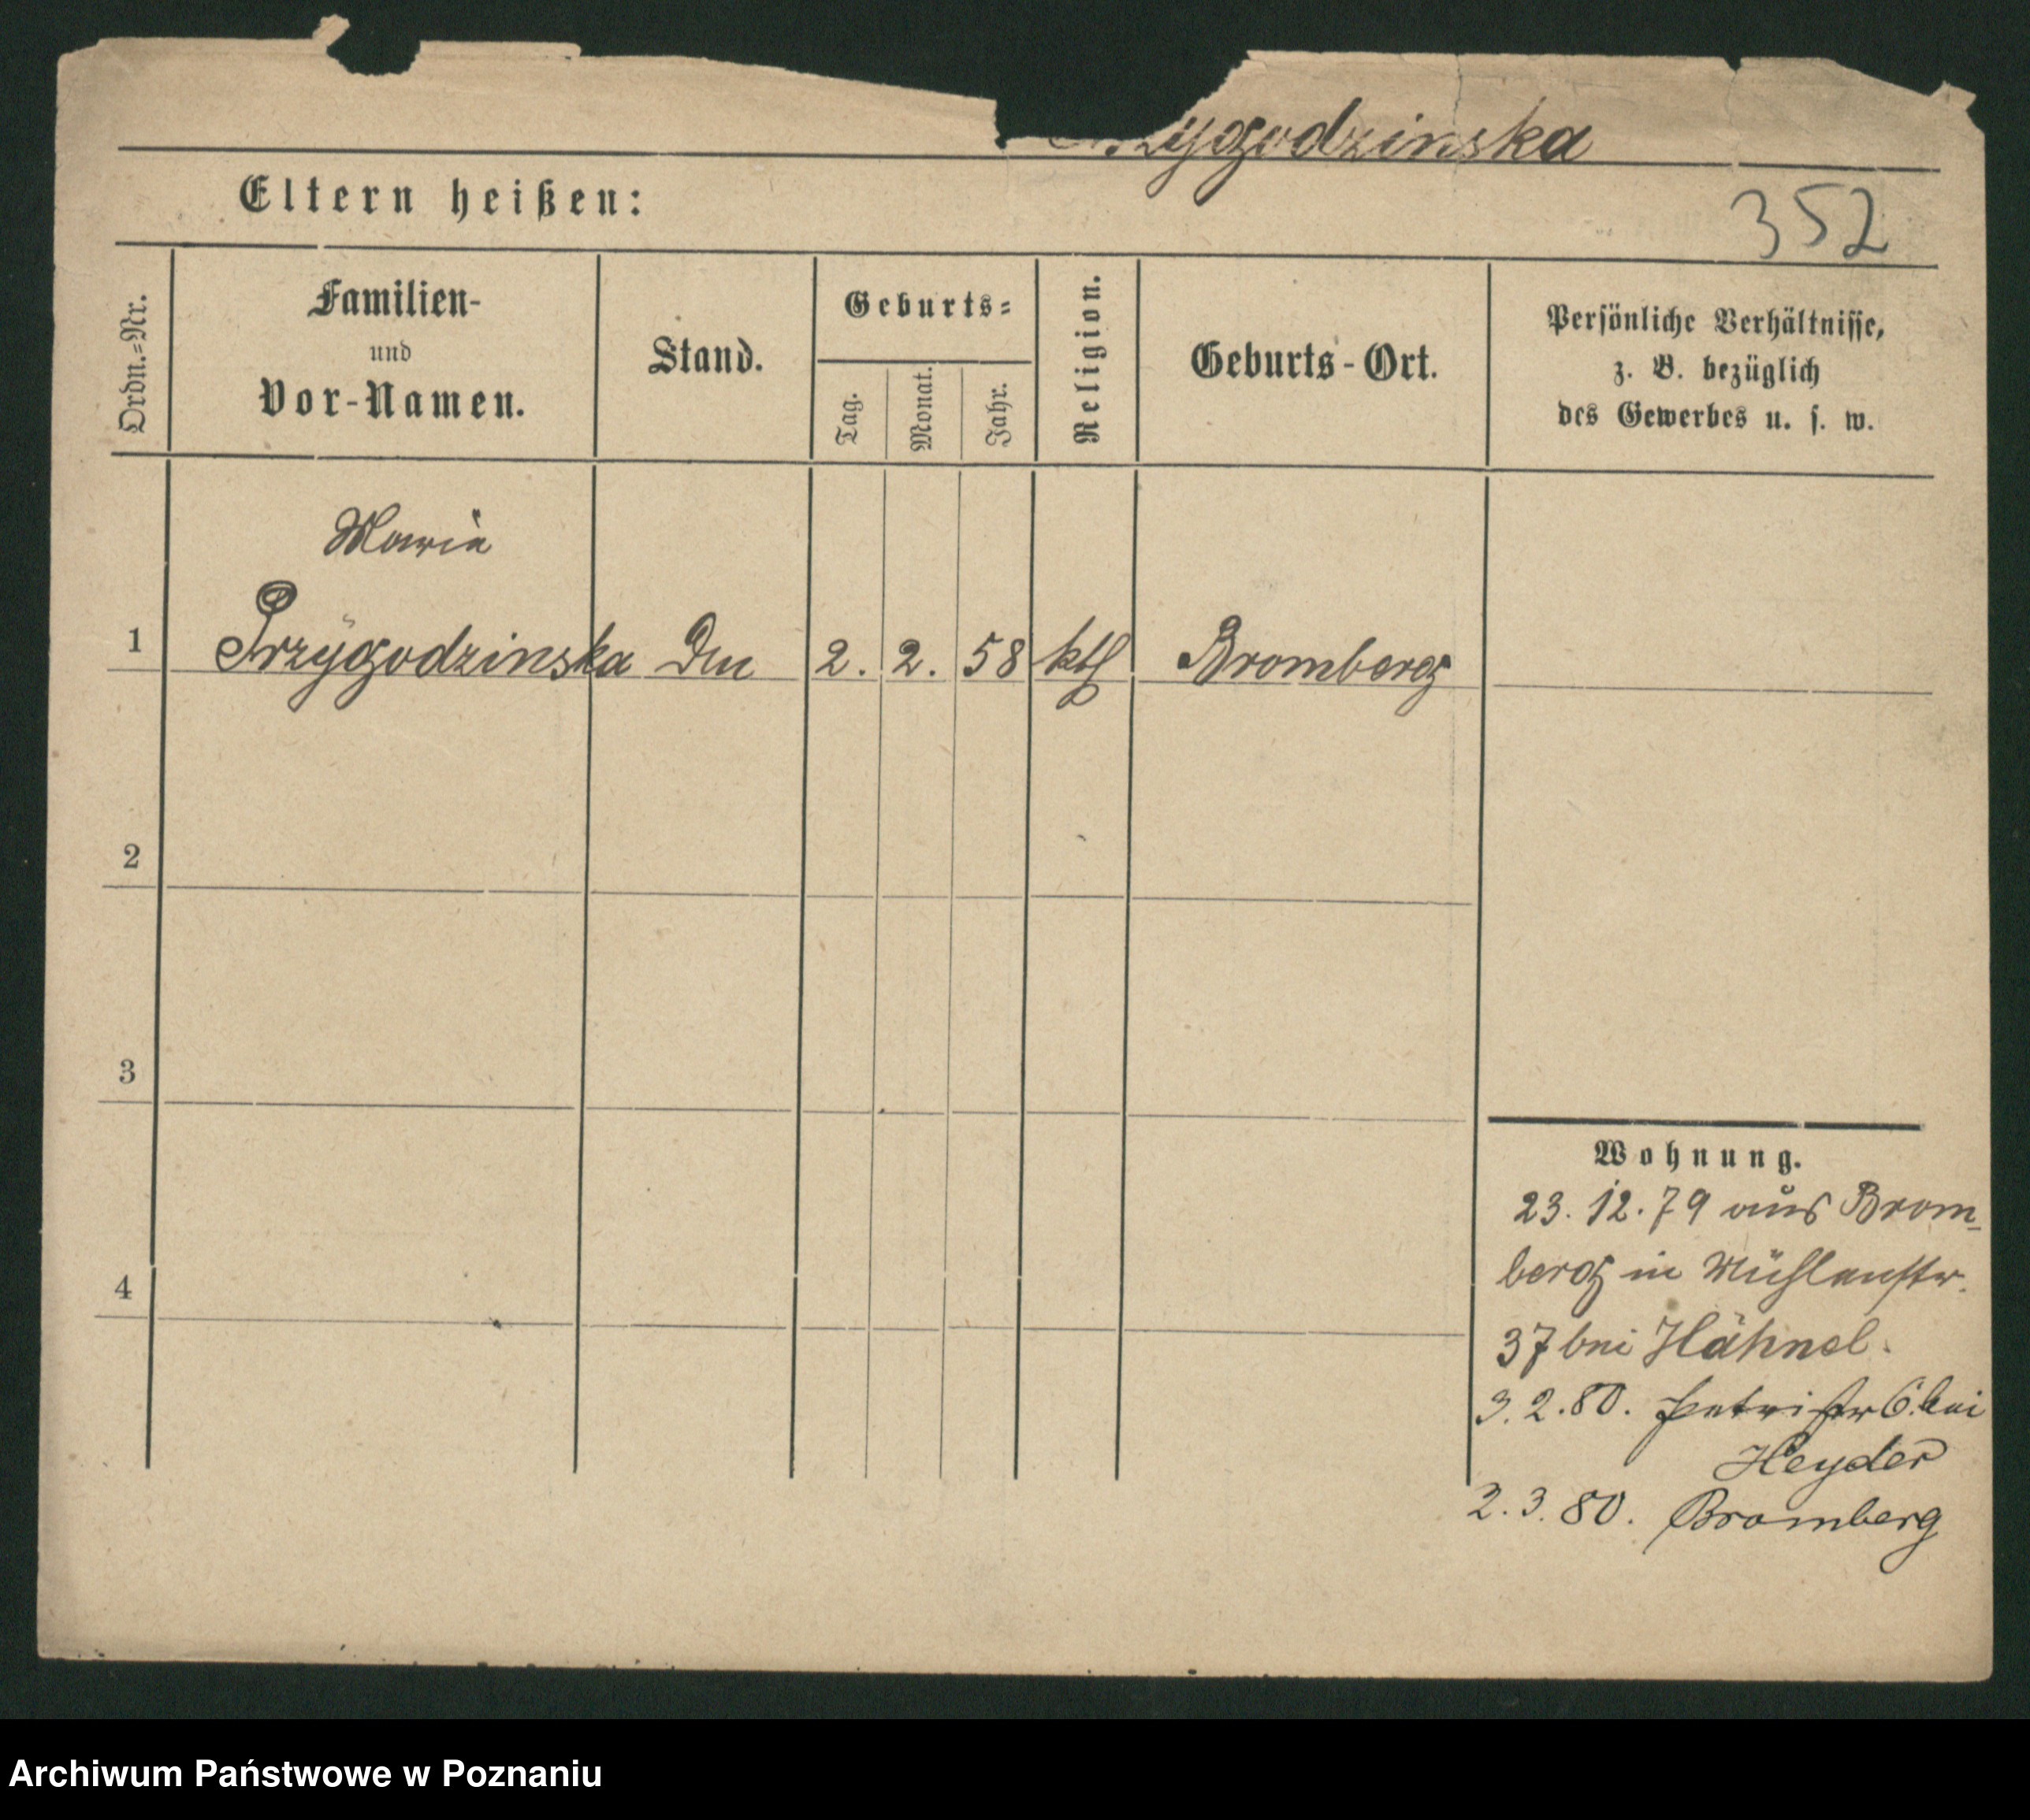 Przygodzinska
Eltern heißen:
352
Ordn.=Nr.
Familien-
und
Vor-Namen.
Stand.
Geburts=
Tag.
Monat.
Jahr.
Religion.
Geburts-Ort.
Persönliche Verhältnisse,
z. B. bezüglich
des Gewerbes u. s. w.
Marie
1 Przygodzinska 2. 2. 58 ktl Bromberg
2
3
4
Wohnung.
23. 12. 79 aus Brom-
berg in Mühlenstr.
37 bei Hähnel.
3. 2. 80. Petristr 6. bei
Heyder
2. 3. 80. Bromberg
Archiwum Państwowe w Poznaniu